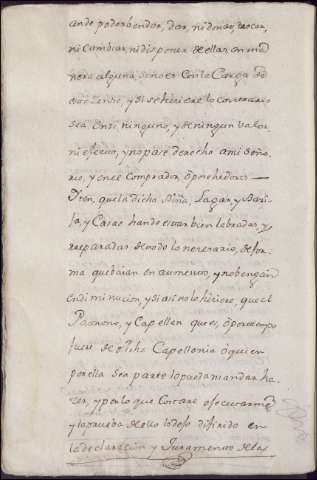 ande poder bender, dar, ni donar, trocar,
ni cambiar, ni disponer de ellas, en ma
nera alguna, sino es con la Carga de
este zenso, y si se hiciere lo contrario
sea en si ninguno, y de ningun valor,
ni efecto, y no pase derecho a mi Seño
rio, y en el Comprador, o posehedores
Iten, que la dicha Viña, Lagar, y Basi
la, y Casas han de estar bien labradas, y
rreparadas de todo lo necesario, de for
ma que baian en aumento, y no bengan
en diminucion, y si asi no lo hiciere, que el
Patrono, y Capellan que es, o por tiempo
fuere de dicha Capellania o quien
por ella sea parte lo pueda mandar ha
zer, y por lo que costare ejecutarme
y la prueba de ello lo dejo diferido en
la declaracion, y Juramento de las